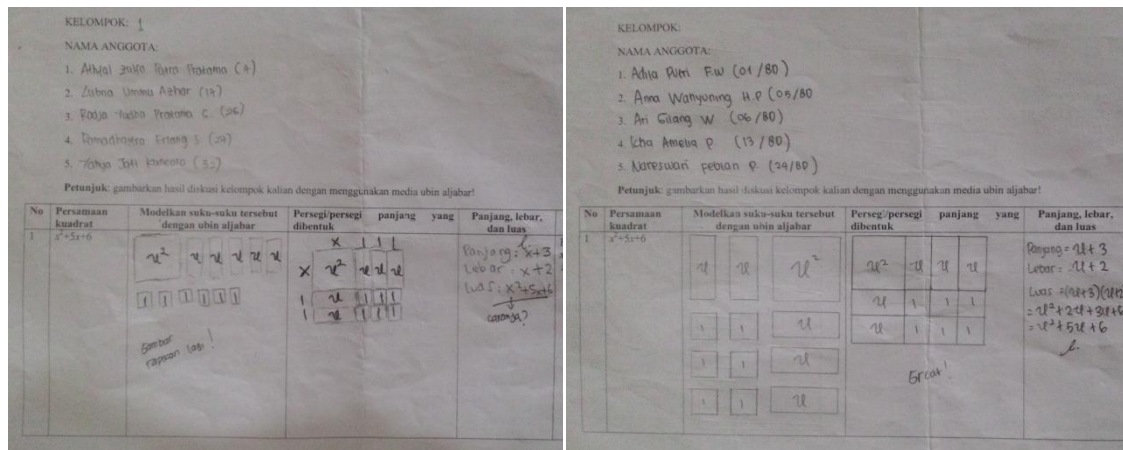 KELOMPOK: 1
NAMA ANGGOTA:
1. Putra Pratama (4)
2. Ummu Azhar (19)
3. Pratama (26)
4. Erlang S (29)
5. Jati
Petunjuk: gambarkan hasil diskusi kelompok kalian dengan menggunakan media ubin aljabar!
No Persamaan kuadrat Modelkan suku-suku tersebut dengan ubin aljabar Persegi/persegi panjang yang dibentuk Panjang, lebar, dan luas
1 x²+5x+6
x² x x x x x
1 1 1 1 1 1
Gambar rapikan lagi!
x 1 1 1
x x² x x x
1 x 1 1 1
1 x 1 1 1
Panjang: x+3
Lebar: x+2
Luas: x²+5x+6
caranya?
KELOMPOK:
NAMA ANGGOTA:
1. Putri F.W (01/80)
2. Anna Wahyuning H.P (05/80
3. Ari Gilang W (06/80)
4. Icha Amelia P (13/80)
5. Nareswari Febian P. (24/80)
Petunjuk: gambarkan hasil diskusi kelompok kalian dengan menggunakan media ubin aljabar!
No Persamaan kuadrat Modelkan suku-suku tersebut dengan ubin aljabar Persegi/persegi panjang yang dibentuk Panjang, lebar, dan luas
1 x²+5x+6
x x x²
1 1 x
1 1 x
1 1 x
x² x x x
x 1 1 1
x 1 1 1
Great!
Panjang = x+3
Lebar = x+2
Luas = (x+3)(x+2
= x²+2x+3x+6
= x²+5x+6